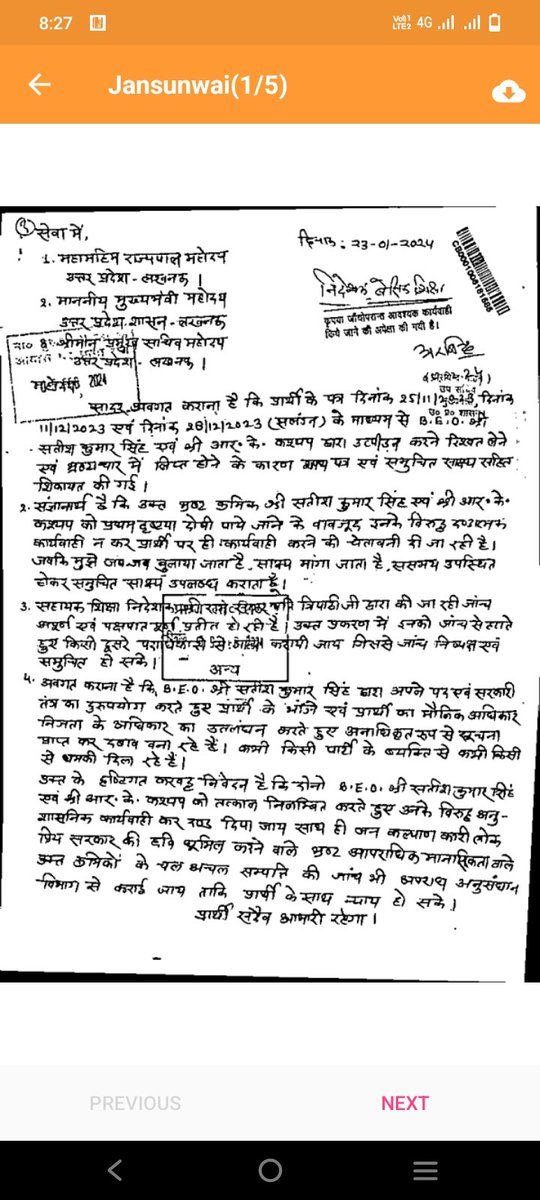 8:27
Vo)) 1 LTE2 4G
Jansunwai(1/5)
सेवा में,
दिनांक : 23-01-2024
1. महामहिम राज्यपाल महोदय
उत्तर प्रदेश - लखनऊ।
CB000100061685
2. माननीय मुख्यमंत्री महोदय
निदेशक बेसिक शिक्षा
उत्तर प्रदेश शासन - लखनऊ
कृपया जाँचोपरान्त आवश्यक कार्यवाही
किये जाने की अपेक्षा की गयी है।
श्रीमान प्रमुख सचिव महोदय
उत्तर प्रदेश - लखनऊ।
2024
उप सचिव
उ० प्र० शासन
सादर अवगत कराना है कि प्रार्थी के पत्र दिनांक 25/11/2023, दिनांक
11/12/2023 एवं दिनांक 28/12/2023 (संलग्न) के माध्यम से B.E.O. श्री
सतीश कुमार सिंह एवं श्री आर. के. कश्यप द्वारा उत्पीड़न करने रिश्वत लेने
एवं भ्रष्टाचार में लिप्त होने के कारण शपथ पत्र एवं समुचित साक्ष्य सहित
शिकायत की गई।
2. संज्ञानार्थ है कि उक्त भ्रष्ट कार्मिक श्री सतीश कुमार सिंह एवं श्री आर. के.
कश्यप को प्रथम दृष्टया दोषी पाये जाने के बावजूद उनके विरुद्ध दण्डात्मक
कार्यवाही न कर प्रार्थी पर ही कार्यवाही करने की चेतावनी दी जा रही है।
जबकि मुझे जब जब बुलाया जाता है, साक्ष्य मांगा जाता है, ससमय उपस्थित
होकर समुचित साक्ष्य उपलब्ध कराता है।
3. सहायक शिक्षा निदेशक त्रिपाठी जी द्वारा की जा रही जांच
अपूर्ण एवं पक्षपात पूर्ण प्रतीत हो रही है। उक्त प्रकरण में इनको जांच से हटाते
हुए किसी दूसरे पदाधिकारी से जांच करायी जाय जिससे जांच निष्पक्ष एवं
समुचित हो सके।
अन्य
4. अवगत कराना है कि B.E.O. श्री सतीश कुमार सिंह द्वारा अपने पद एवं सरकारी
तंत्र का दुरुपयोग करते हुए प्रार्थी के भांजे एवं प्रार्थी का मौलिक अधिकार
निजता के अधिकार का उलंघन करते हुए अनाधिकृत रूप से सूचना
प्राप्त कर दबाव बना रहे हैं। कभी किसी पार्टी के व्यक्ति से कभी किसी
से धमकी दिला रहे हैं।
उक्त के दृष्टिगत करबद्ध निवेदन है कि दोनो B.E.O. श्री सतीश कुमार सिंह
एवं श्री आर. के. कश्यप को तत्काल निलम्बित करते हुए उनके विरुद्ध अनु-
शासनिक कार्यवाही कर दण्ड दिया जाय साथ ही जन कल्याण कारी लोक
प्रिय सरकार की छवि धूमिल करने वाले भ्रष्ट आपराधिक मानसिकता वाले
उक्त कार्मिकों के चल अचल सम्पत्ति की जांच भी अपराध अनुसंधान
विभाग से कराई जाय ताकि प्रार्थी के साथ न्याय हो सके।
प्रार्थी सदैव आभारी रहेगा।
PREVIOUS
NEXT